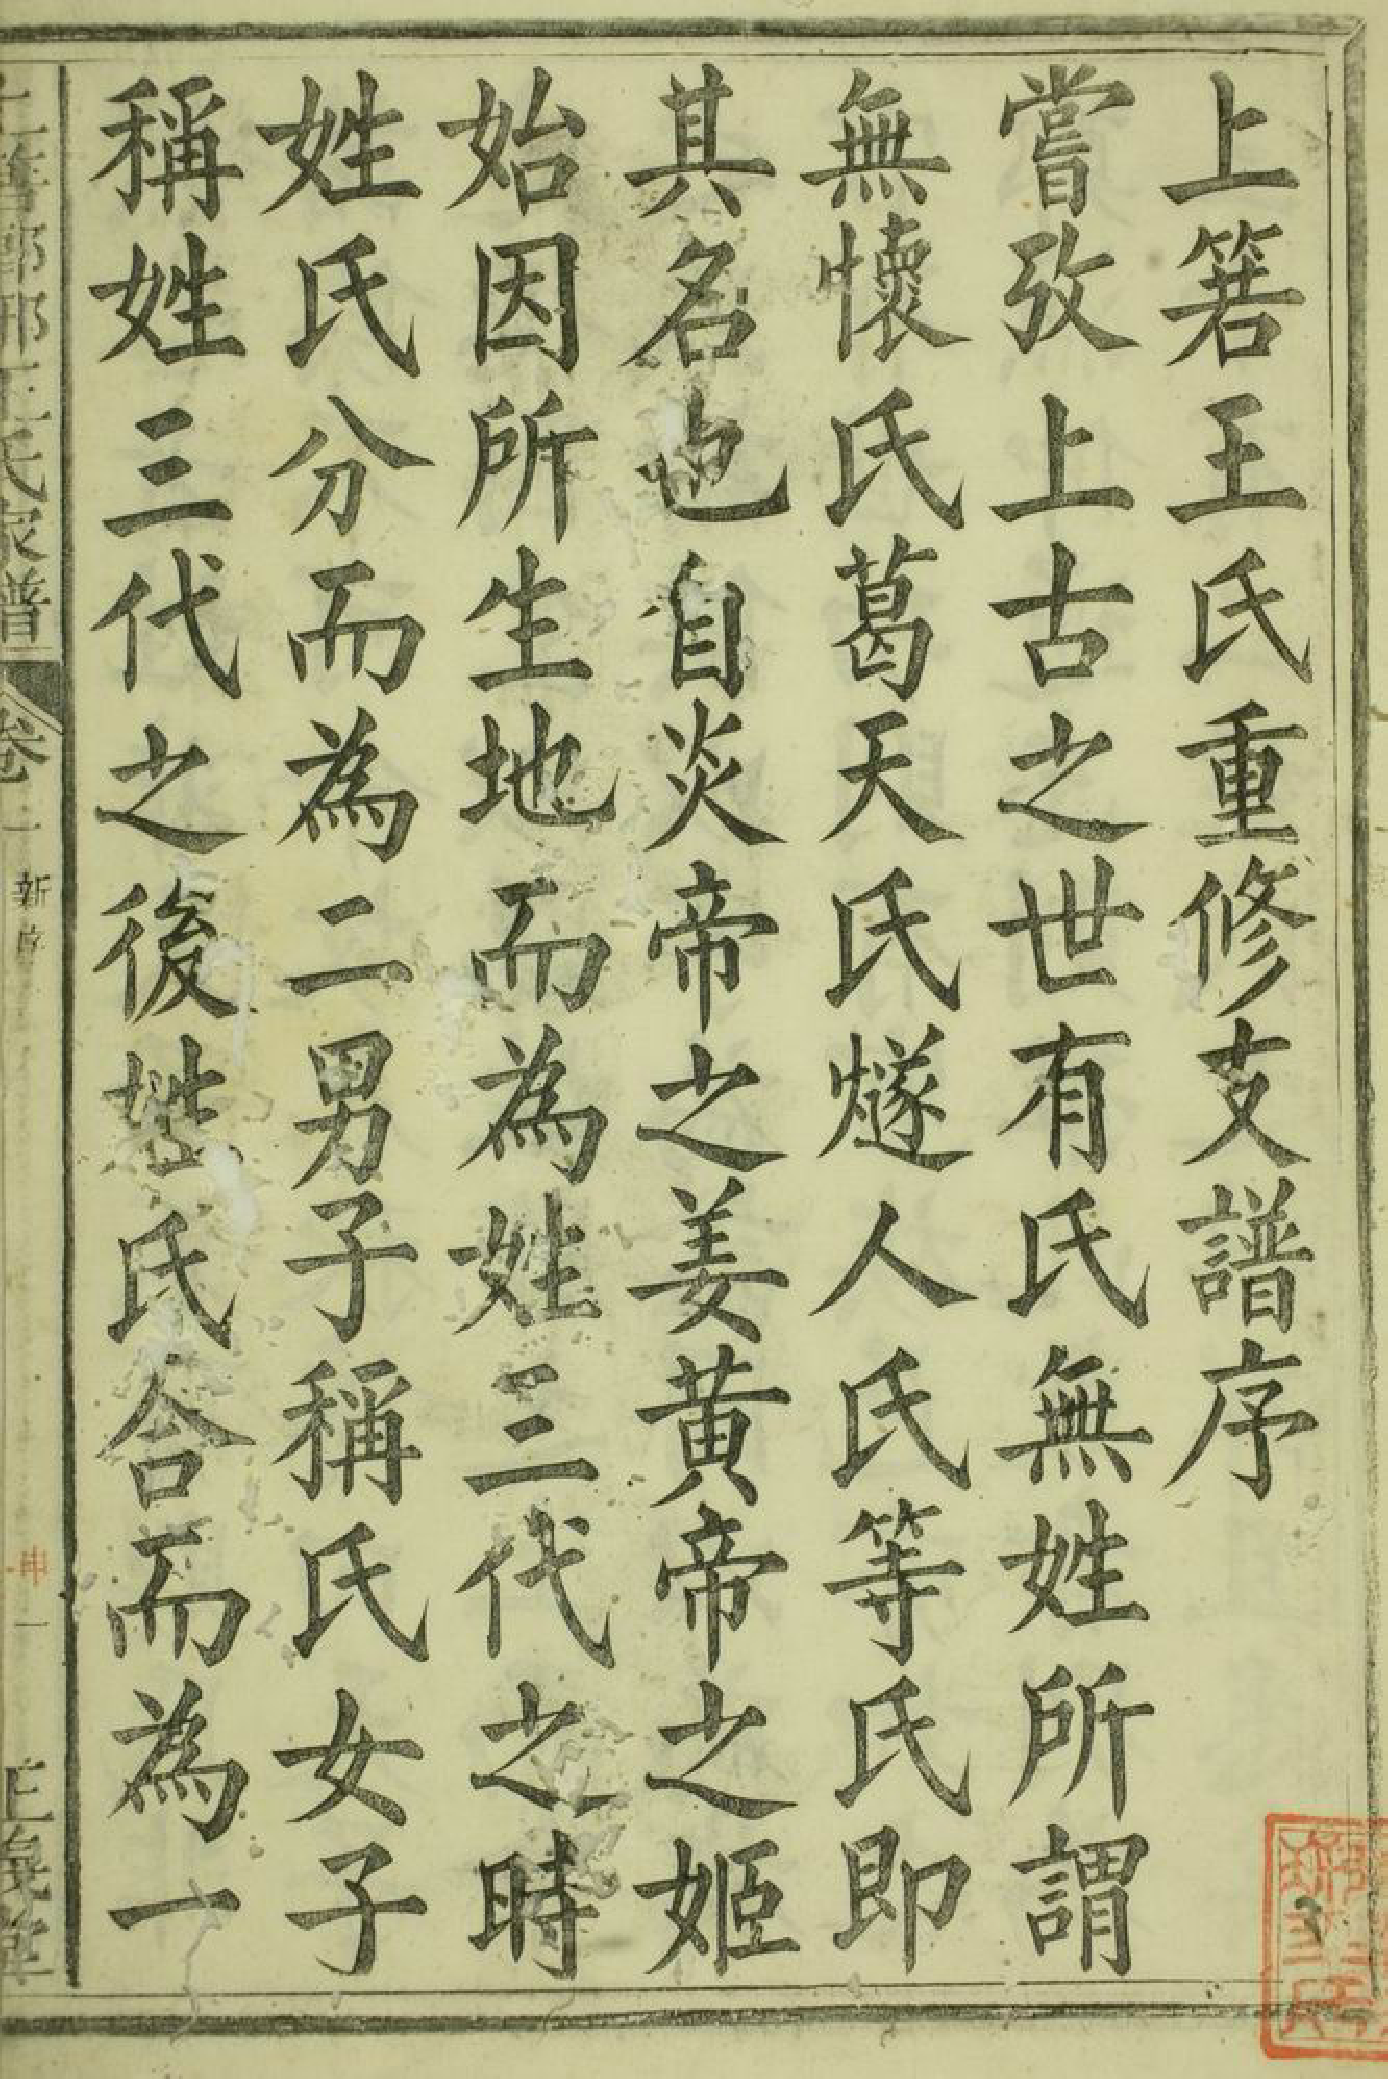 上箬王氏重修支譜序
嘗攷上古之世有氏無姓所謂
無懷氏葛天氏燧人氏等氏即
其名也自炎帝之姜黃帝之姬
始因所生地而為姓三代之時
姓氏分而為二男子稱氏女子
稱姓三代之後姓氏合而為一
上箬琊王氏家譜
卷一
新序
一
三槐堂